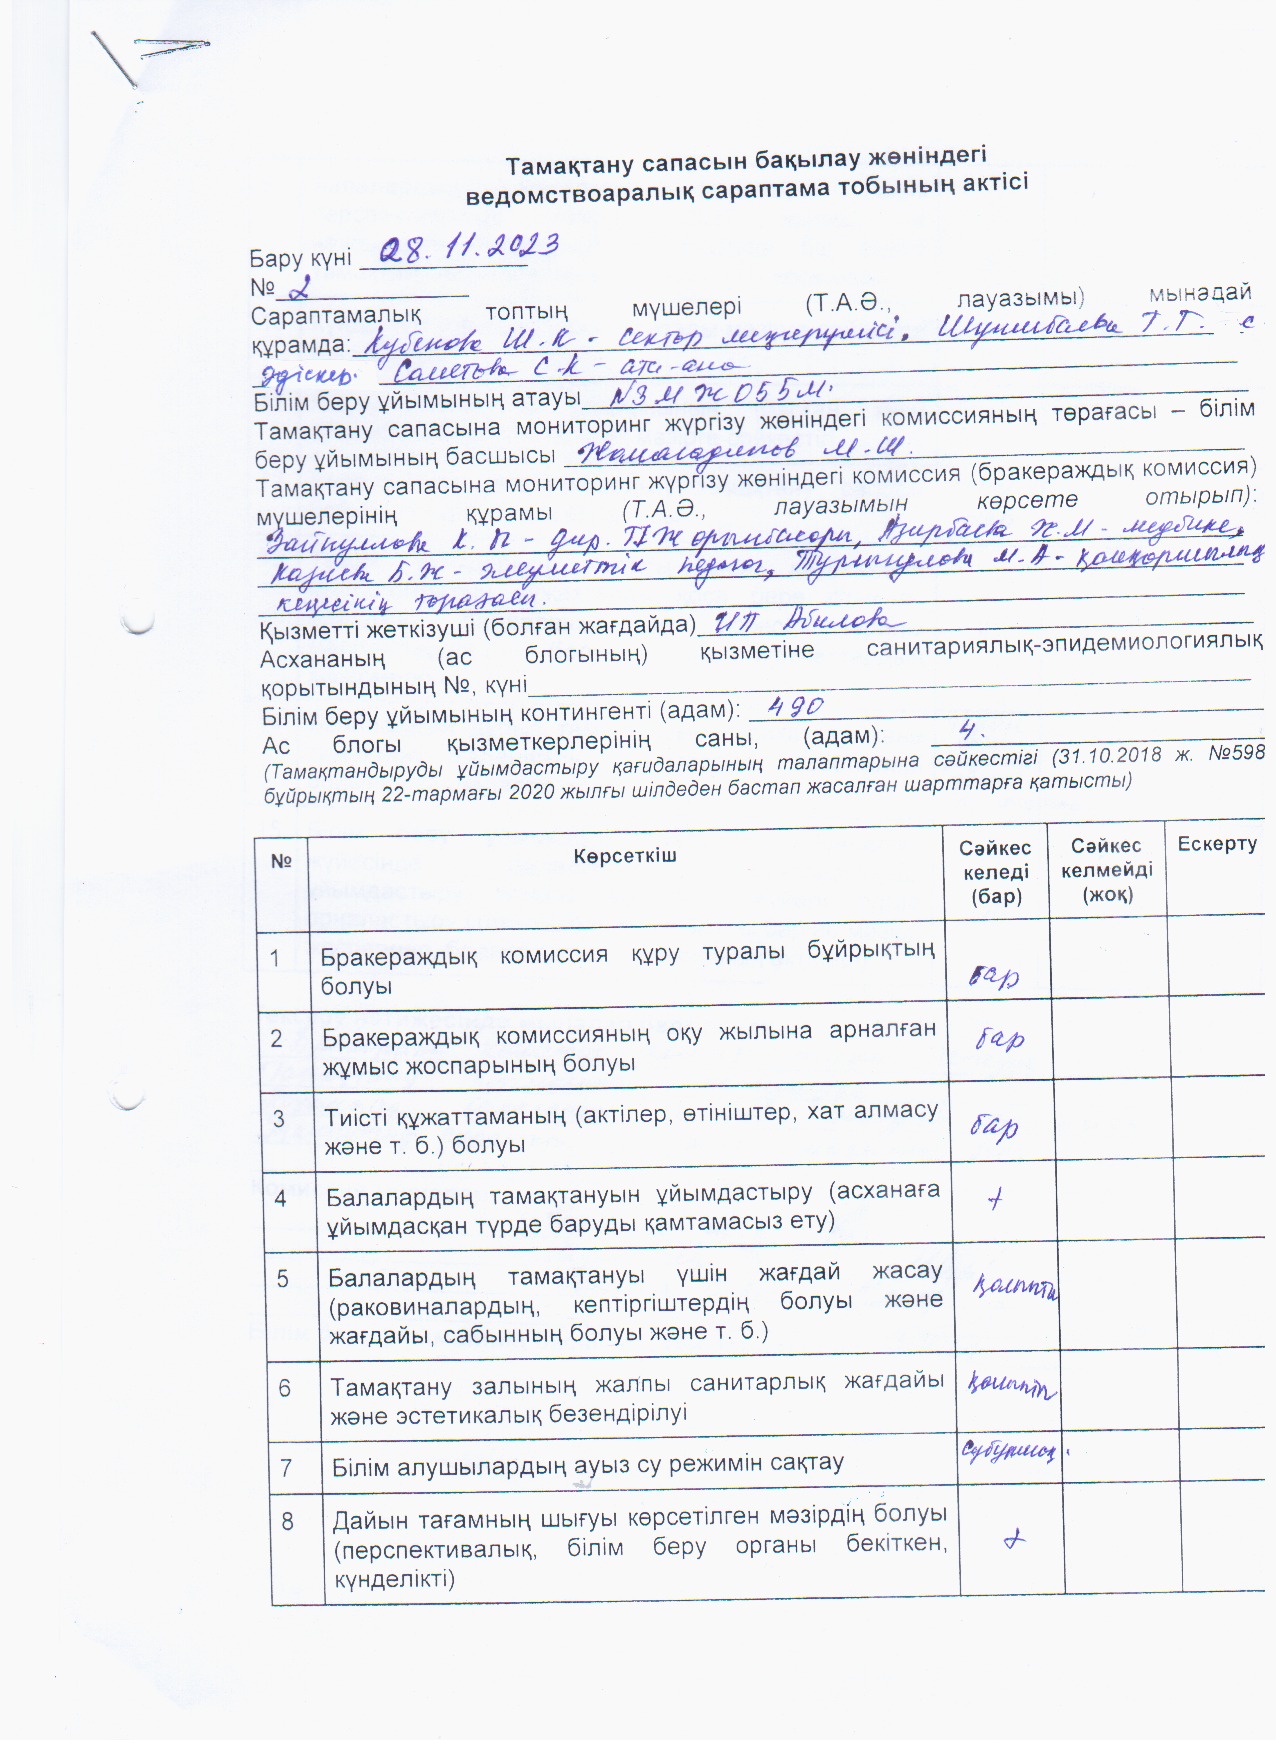 Тамақтану сапасын бақылау жөніндегі
ведомствоаралық сараптама тобының актісі
Бару күні 28.11.2023
№ 2
Сараптамалық топтың мүшелері (Т.А.Ә., лауазымы) мынадай
құрамда: Кубенова Ш.К - сектор меңгерушісі, Т.Г.
әдіскер. Саметова С.К - ата-ана
Білім беру ұйымының атауы N3 М Ж О Б Б М.
Тамақтану сапасына мониторинг жүргізу жөніндегі комиссияның төрағасы – білім
беру ұйымының басшысы М.Ш.
Тамақтану сапасына мониторинг жүргізу жөніндегі комиссия (бракераждық комиссия)
мүшелерінің құрамы (Т.А.Ә., лауазымын көрсете отырып):
К. П - дир. ТІЖ орынбасары, Ж.М - медбике,
Казиева Б.Ж - әлеуметтік педагог, М.А - қамқоршылық
кеңесінің төрағасы.
Қызметті жеткізуші (болған жағдайда) ИП Абилова
Асхананың (ас блогының) қызметіне санитариялық-эпидемиологиялық
қорытындының №, күні
Білім беру ұйымының контингенті (адам): 490
Ас блогы қызметкерлерінің саны, (адам): 4.
(Тамақтандыруды ұйымдастыру қағидаларының талаптарына сәйкестігі (31.10.2018 ж. №598
бұйрықтың 22-тармағы 2020 жылғы шілдеден бастап жасалған шарттарға қатысты)
№ Көрсеткіш Сәйкес келеді (бар) Сәйкес келмейді (жоқ) Ескерту
1 Бракераждық комиссия құру туралы бұйрықтың
болуы бар
2 Бракераждық комиссияның оқу жылына арналған
жұмыс жоспарының болуы бар
3 Тиісті құжаттаманың (актілер, өтініштер, хат алмасу
және т. б.) болуы бар
4 Балалардың тамақтануын ұйымдастыру (асханаға
ұйымдасқан түрде баруды қамтамасыз ету) +
5 Балалардың тамақтануы үшін жағдай жасау
(раковиналардың, кептіргіштердің болуы және қалыпты
жағдайы, сабынның болуы және т. б.)
6 Тамақтану залының жалпы санитарлық жағдайы қалыпты
және эстетикалық безендірілуі
7 Білім алушылардың ауыз су режимін сақтау
8 Дайын тағамның шығуы көрсетілген мәзірдің болуы
(перспективалық, білім беру органы бекіткен, +
күнделікті)